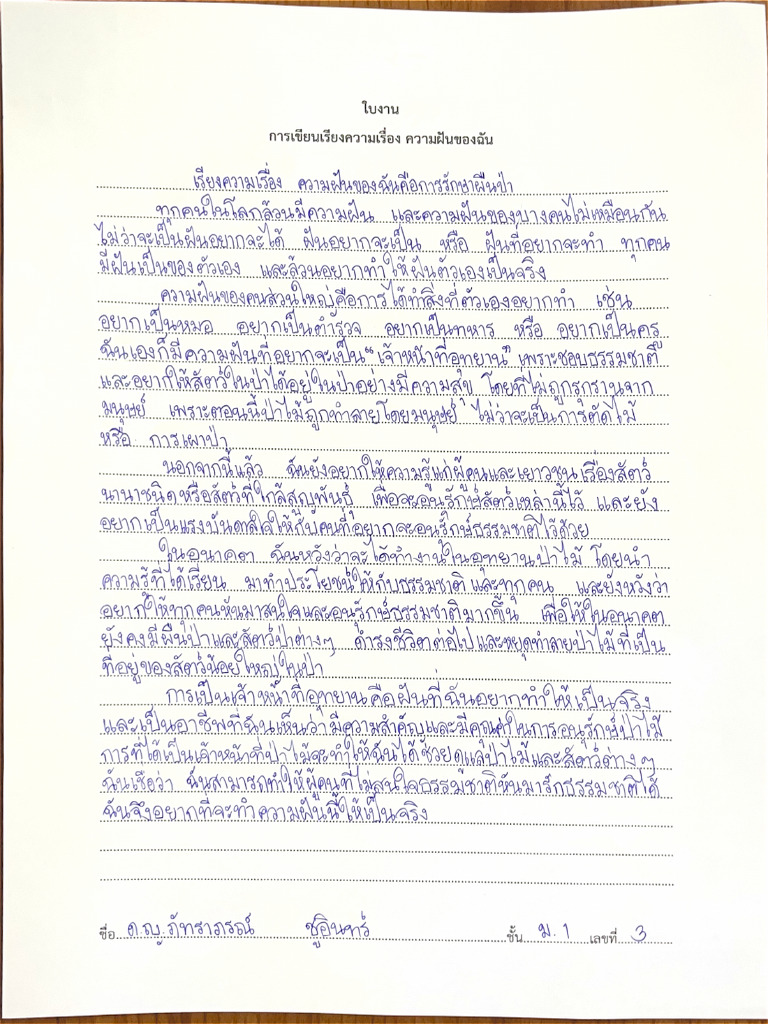 ใบงาน
การเขียนเรียงความเรื่อง ความฝันของฉัน
เรียงความเรื่อง ความฝันของฉันคือการรักษาผืนป่า
ทุกคนในโลกล้วนมีความฝัน และความฝันของบางคนไม่เหมือนกัน
ไม่ว่าจะเป็นฝันอยากจะได้ ฝันอยากจะเป็น หรือ ฝันที่อยากจะทำ ทุกคน
มีฝันเป็นของตัวเอง และล้วนอยากทำให้ฝันตัวเองเป็นจริง
ความฝันของคนส่วนใหญ่คือการได้ทำสิ่งที่ตัวเองอยากทำ เช่น
อยากเป็นหมอ อยากเป็นตำรวจ อยากเป็นทหาร หรือ อยากเป็นครู
ฉันเองก็มีความฝันที่อยากจะเป็น "เจ้าหน้าที่อุทยาน" เพราะชอบธรรมชาติ
และอยากให้สัตว์ในป่าได้อยู่ในป่าอย่างมีความสุข โดยที่ไม่ถูกรุกรานจาก
มนุษย์ เพราะตอนนี้ป่าไม้ถูกทำลายโดยมนุษย์ ไม่ว่าจะเป็นการตัดไม้
หรือ การเผาป่า
นอกจากนี้แล้ว ฉันยังอยากให้ความรู้แก่ผู้คนและเยาวชนเรื่องสัตว์
นานาชนิดหรือสัตว์ที่ใกล้สูญพันธุ์ เพื่อจะอนุรักษ์สัตว์เหล่านี้ไว้ และยัง
อยากเป็นแรงบันดาลใจให้กับคนที่อยากจะอนุรักษ์ธรรมชาติไว้ด้วย
ในอนาคต ฉันหวังว่าจะได้ทำงานในอุทยานป่าไม้ โดยนำ
ความรู้ที่ได้เรียน มาทำประโยชน์ให้กับธรรมชาติและทุกคน และยังหวังว่า
อยากให้ทุกคนหันมาสนใจและอนุรักษ์ธรรมชาติมากขึ้น เพื่อให้ในอนาคต
ยังคงมีผืนป่าและสัตว์ป่าต่างๆ ดำรงชีวิตต่อไปและหยุดทำลายป่าไม้ที่เป็น
ที่อยู่ของสัตว์น้อยใหญ่ในป่า
การเป็นเจ้าหน้าที่อุทยานคือฝันที่ฉันอยากทำให้เป็นจริง
และเป็นอาชีพที่ฉันเห็นว่ามีความสำคัญและมีคุณค่าในการอนุรักษ์ป่าไม้
การที่ได้เป็นเจ้าหน้าที่ป่าไม้จะทำให้ฉันได้ช่วยดูแลป่าไม้และสัตว์ต่างๆ
ฉันเชื่อว่า ฉันสามารถทำให้ผู้คนที่ไม่สนใจธรรมชาติหันมารักธรรมชาติได้
ฉันจึงอยากที่จะทำความฝันนี้ให้เป็นจริง
ชื่อ ด.ญ.ภัทราภรณ์ ชูอินทร์ ชั้น ม.1 เลขที่ 3